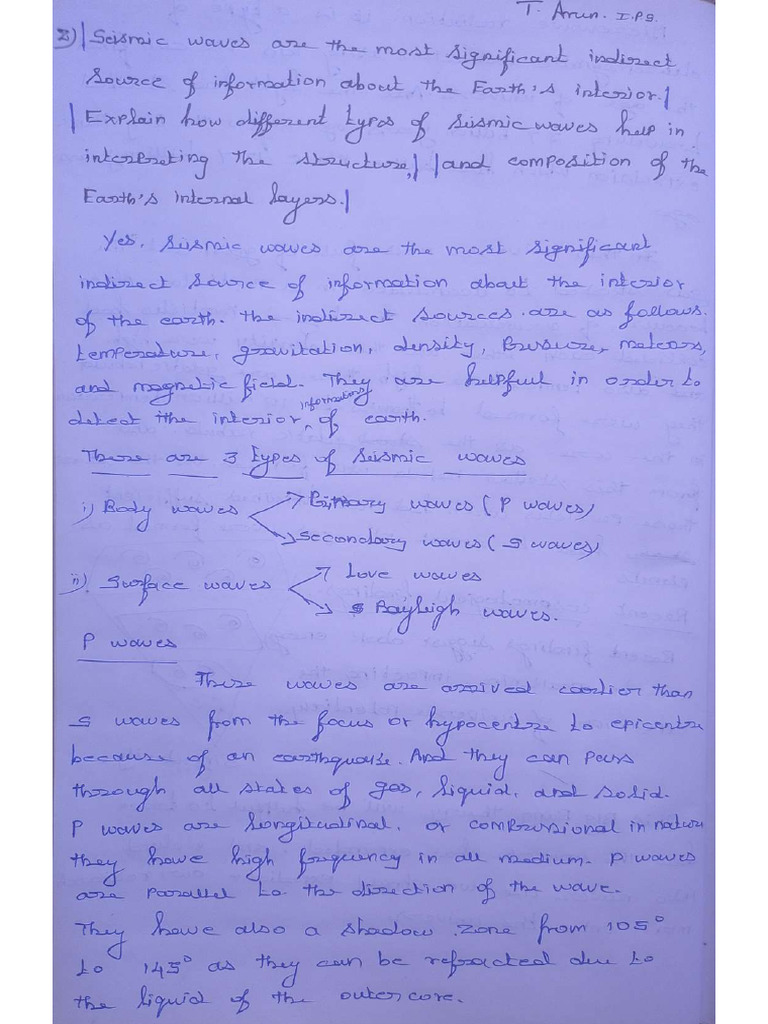 T. Arun. I.P.S.
2) Seismic waves are the most significant indirect
source of information about the Earth's interior.
Explain how different types of seismic waves help in
interpreting the structure, and composition of the
Earth's internal layers.
Yes, seismic waves are the most significant
indirect source of information about the interior
of the earth. the indirect sources are as follows.
temperature, gravitation, density, pressure, meteors,
and magnetic field. They are helpful in order to
detect the interior information of earth.
There are 3 types of seismic waves
i) Body waves Primary waves (P waves)
Secondary waves (S waves)
ii) Surface waves Love waves
Rayleigh waves.
P waves
These waves are arrived earlier than
S waves from the focus or hypocentre to epicentre
because of an earthquake. And they can pass
through all states of gas, liquid, and solid.
P waves are longitudinal, or compressional in nature
they have high frequency in all medium. P waves
are parallel to the direction of the wave.
They have also a shadow zone from 105°
to 145° as they can be refracted due to
the liquid of the outer core.